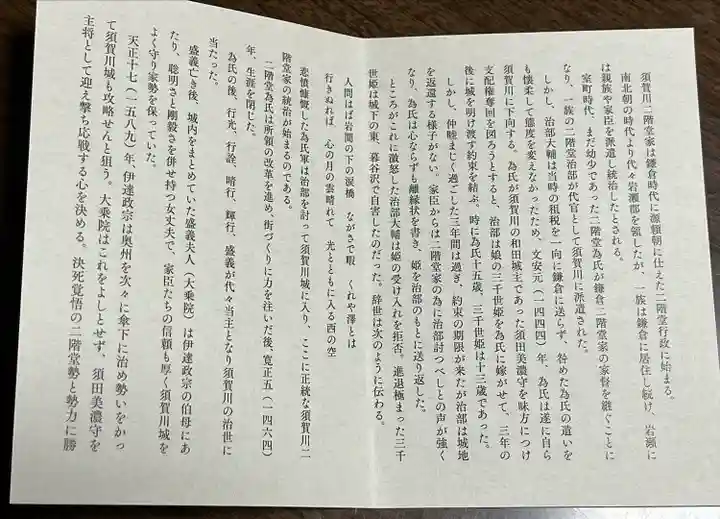 須賀川二階堂家は鎌倉時代に源頼朝に仕えた二階堂行政に始まる。
南北朝の時代より代々岩瀬郡を領したが、一族は鎌倉に居住し続け、岩瀬に
は親族や家臣を派遣し統治したとされる。
室町時代、まだ幼少であった二階堂為氏が鎌倉二階堂家の家督を継ぐことに
なり、一族の二階堂治部が代官として須賀川に派遣された。
しかし、治部大輔は当時の租税を一向に鎌倉に送らず、咎めた為氏の遣いを
も懐柔して態度を変えなかったため、文安元（一四四四）年、為氏は遂に自ら
須賀川に下向する。為氏が須賀川の和田城主であった須田美濃守を味方につけ
支配権奪回を図ろうとすると、治部は娘の三千世姫を為氏に嫁がせて、三年の
後に城を明け渡す約束を結ぶ。時に為氏十五歳、三千世姫は十三歳であった。
しかし、仲睦まじく過ごした三年間は過ぎ、約束の期限が来たが治部は城地
を返還する様子がない。家臣からは二階堂家の為に治部討つべしとの声が強く
なり、為氏は心ならずも離縁状を書き、姫を治部のもとに送り返した。
ところがこれに激怒した治部大輔は姫の受け入れを拒否。進退極まった三千
世姫は城下の東、暮谷沢で自害したのだった。辞世は次のように伝わる。
人間はば岩間の下の涙橋　ながさで暇　くれや澤とは
行きぬれば　心の月の雲晴れて　光とともに入る西の空
悲憤慷慨した為氏軍は治部を討って須賀川城に入り、ここに正統な須賀川二
階堂家の統治が始まるのである。
二階堂為氏は所領の改革を進め、街づくりに力を注いだ後、寛正五（一四六四）
年、生涯を閉じた。
為氏の後、行光、行詮、晴行、輝行、盛義が代々当主となり須賀川の治世に
当たった。
盛義亡き後、城内をまとめていた盛義夫人（大乗院）は伊達政宗の伯母にあ
たり、聡明さと剛毅さを併せ持つ女丈夫で、家臣たちの信頼も厚く須賀川城を
よく守り家勢を保っていた。
天正十七（一五八九）年、伊達政宗は奥州を次々に傘下に治め勢いをかっ
て須賀川城も攻略せんと狙う。大乗院はこれをよしとせず、須田美濃守を
主将として迎え撃ち応戦する心を決める。決死覚悟の二階堂勢と勢力に勝